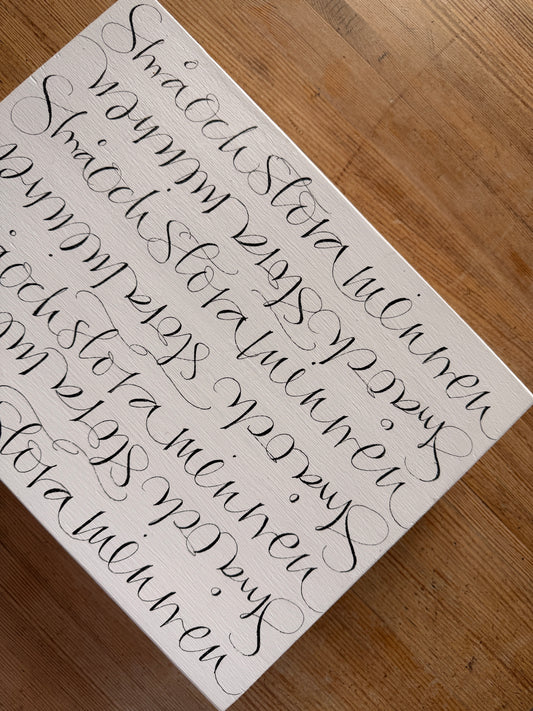 Små och stora minnen
Små och stora minnen
Små och stora minnen
Små och stora minne
och stora minnen
Små och stora
stora minnen